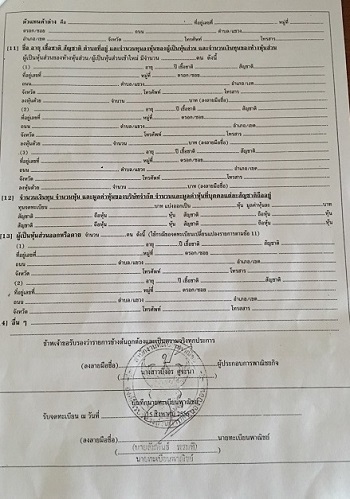 ตัวแทนค้าต่าง คือ ที่อยู่เลขที่ หมู่ที่
ตรอก/ซอย ถนน ตำบล/แขวง
อำเภอ/เขต จังหวัด โทรศัพท์ โทรสาร
[11] ชื่อ อายุ เชื้อชาติ สัญชาติ ตำบลที่อยู่ และจำนวนทุนลงหุ้นของผู้เป็นหุ้นส่วน และจำนวนเงินทุนของห้างหุ้นส่วน
ผู้เป็นหุ้นส่วนของห้างหุ้นส่วน/ผู้เป็นหุ้นส่วนเข้าใหม่ มีจำนวน คน ดังนี้
(1) อายุ ปี เชื้อชาติ สัญชาติ
ที่อยู่เลขที่ หมู่ที่ ตรอก/ซอย
ถนน ตำบล/แขวง อำเภอ/เขต
จังหวัด โทรศัพท์ โทรสาร
ลงหุ้นด้วย จำนวน บาท (ลงลายมือชื่อ)
(2) อายุ ปี เชื้อชาติ สัญชาติ
ที่อยู่เลขที่ หมู่ที่ ตรอก/ซอย
ถนน ตำบล/แขวง อำเภอ/เขต
จังหวัด โทรศัพท์ โทรสาร
ลงหุ้นด้วย จำนวน บาท (ลงลายมือชื่อ)
(3) อายุ ปี เชื้อชาติ สัญชาติ
ที่อยู่เลขที่ หมู่ที่ ตรอก/ซอย
ถนน ตำบล/แขวง อำเภอ/เขต
จังหวัด โทรศัพท์ โทรสาร
ลงหุ้นด้วย จำนวน บาท (ลงลายมือชื่อ)
[12] จำนวนเงินทุน จำนวนหุ้น และมูลค่าหุ้นของบริษัทจำกัด จำนวนและมูลค่าหุ้นที่บุคคลแต่ละสัญชาติถืออยู่
ทุนจดทะเบียน บาท แบ่งออกเป็น หุ้น มูลค่าหุ้นละ บาท
สัญชาติ ถือหุ้น หุ้น สัญชาติ ถือหุ้น หุ้น
สัญชาติ ถือหุ้น หุ้น สัญชาติ ถือหุ้น หุ้น
[13] ผู้เป็นหุ้นส่วนออกหรือตาย จำนวน คน ดังนี้ (ใช้กรณีจดทะเบียนเปลี่ยนแปลงรายการตามข้อ 11)
(1) อายุ ปี เชื้อชาติ สัญชาติ
ที่อยู่เลขที่ หมู่ที่ ตรอก/ซอย
ถนน ตำบล/แขวง อำเภอ/เขต
จังหวัด โทรศัพท์ โทรสาร
(2) อายุ ปี เชื้อชาติ สัญชาติ
ที่อยู่เลขที่ หมู่ที่ ตรอก/ซอย
ถนน ตำบล/แขวง อำเภอ/เขต
จังหวัด โทรศัพท์ โทรสาร
4] อื่น ๆ
ข้าพเจ้าขอรับรองว่ารายการข้างต้นถูกต้องและเป็นความจริงทุกประการ
(ลงลายมือชื่อ) ผู้ประกอบการพาณิชยกิจ
รับจดทะเบียน ณ วันที่ 15 สิงหาคม
(ลงลายมือชื่อ) นายทะเบียนพาณิชย์
นายทะเบียนพาณิชย์